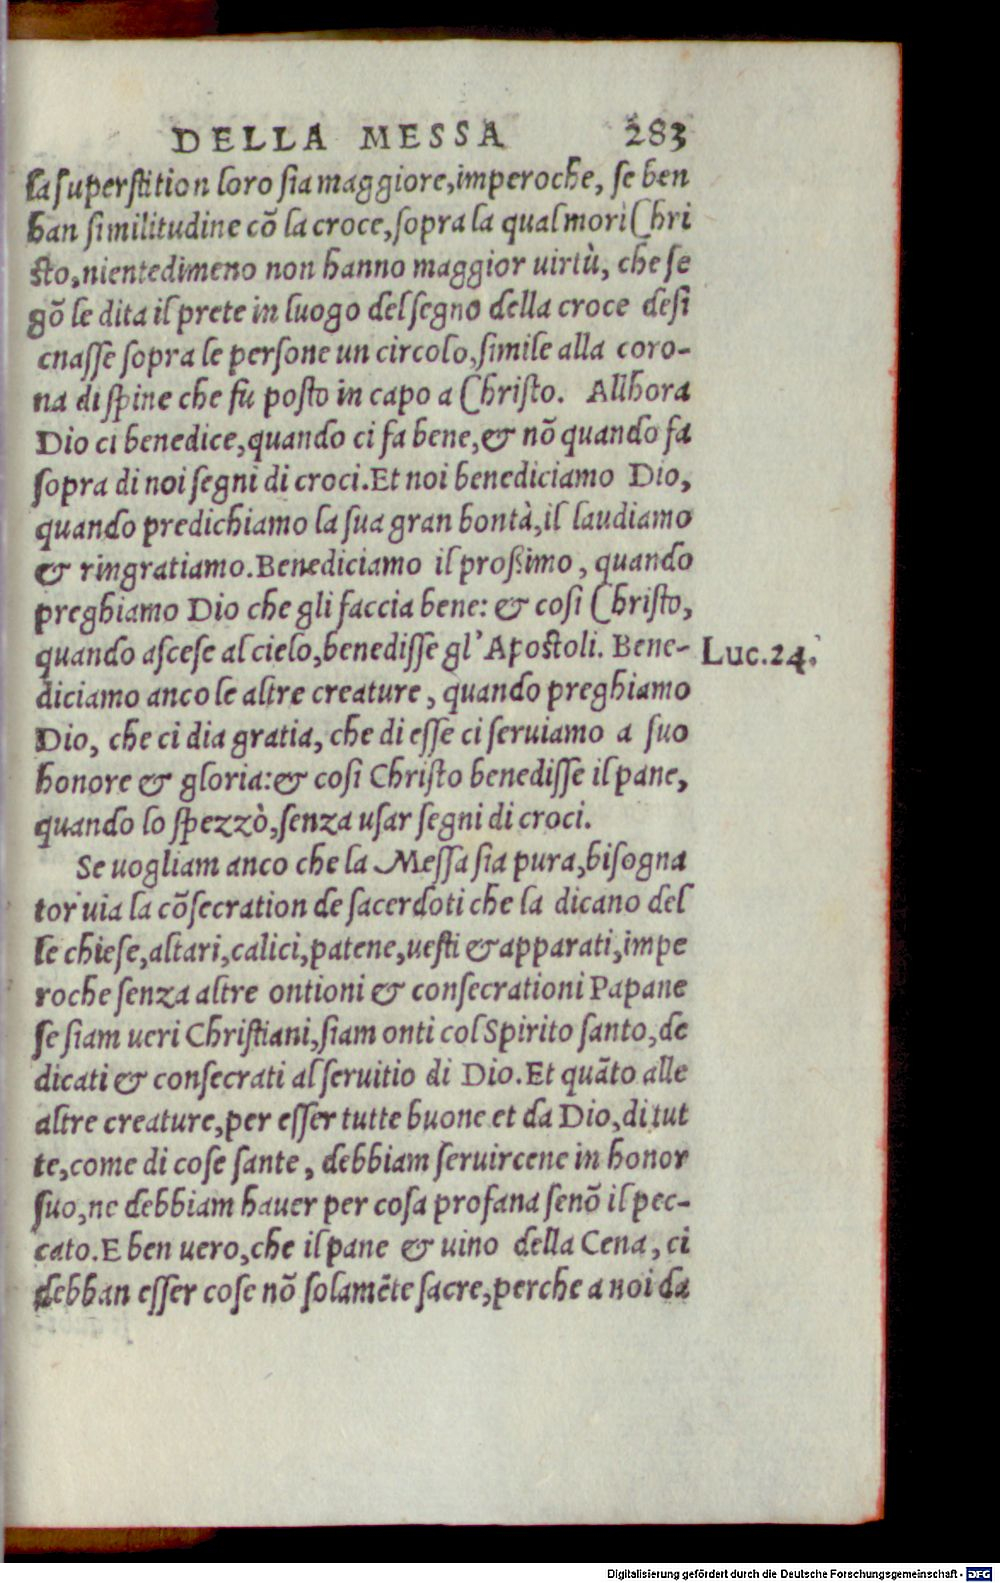 DELLA MESSA 283
la superstition loro sia maggiore,imperoche, se ben
han similitudine cõ la croce,sopra la qual mori Chri
sto,nientedimeno non hanno maggior uirtù, che se
gõ le dita il prete in luogo del segno della croce desi
cnasse sopra le persone un circolo,simile alla coro-
na di spine che fu posto in capo a Christo. Allhora
Dio ci benedice,quando ci fa bene,& nõ quando fa
sopra di noi segni di croci.Et noi benediciamo Dio,
quando predichiamo la sua gran bontà,il laudiamo
& ringratiamo.Benediciamo il proßimo, quando
preghiamo Dio che gli faccia bene: & cosi Christo,
quando ascese al cielo,benedisse gl'Apostoli. Bene-
Luc.24.
diciamo anco le altre creature, quando preghiamo
Dio, che ci dia gratia, che di esse ci seruiamo a suo
honore & gloria:& cosi Christo benedisse il pane,
quando lo spezzò,senza usar segni di croci.
Se uogliam anco che la Messa sia pura,bisogna
tor uia la cõsecration de sacerdoti che la dicano del
le chiese,altari,calici,patene,uesti & apparati,impe
roche senza altre ontioni & consecrationi Papane
se siam ueri Christiani,siam onti col Spirito santo,de
dicati & consecrati al seruitio di Dio.Et quãto alle
altre creature,per esser tutte buone et da Dio,di tut
te,come di cose sante, debbiam seruircene in honor
suo,ne debbiam hauer per cosa profana senõ il pec-
cato.E ben uero,che il pane & uino della Cena, ci
debban esser cose nõ solamẽte sacre,perche a noi da
Digitalisierung gefördert durch die Deutsche Forschungsgemeinschaft - DFG